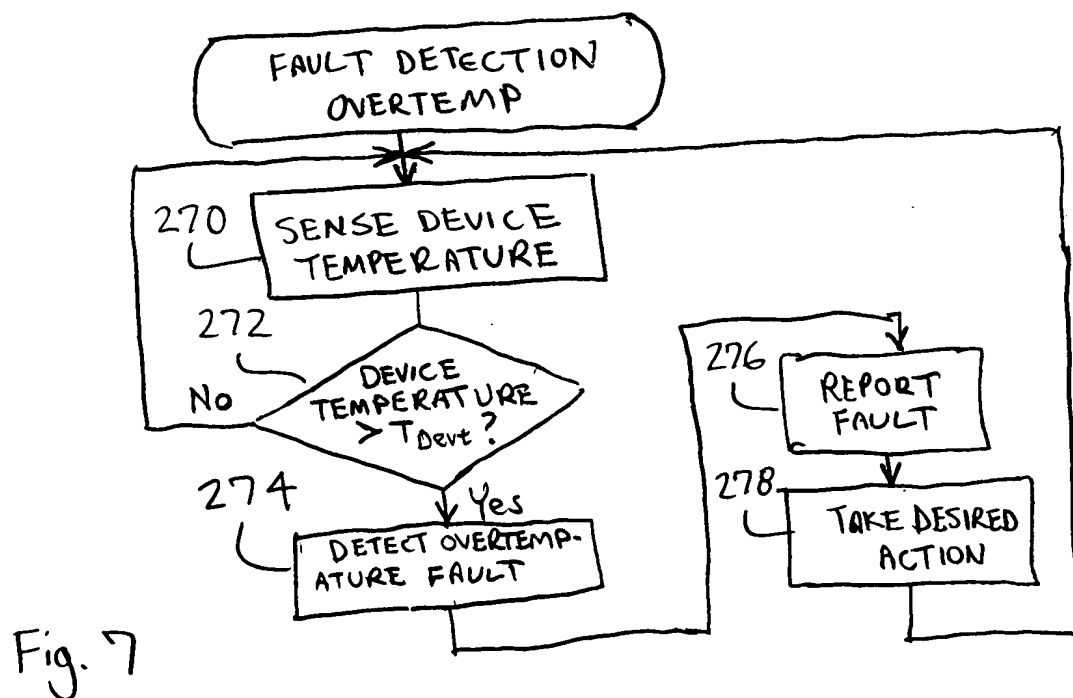 FAULT DETECTION
OVERTEMP
270
SENSE DEVICE
TEMPERATURE
272
DEVICE
TEMPERATURE
> TDevt ?
No
Yes
274
DETECT OVERTEMP-
ATURE FAULT
276
REPORT
FAULT
278
TAKE DESIRED
ACTION
Fig. 7